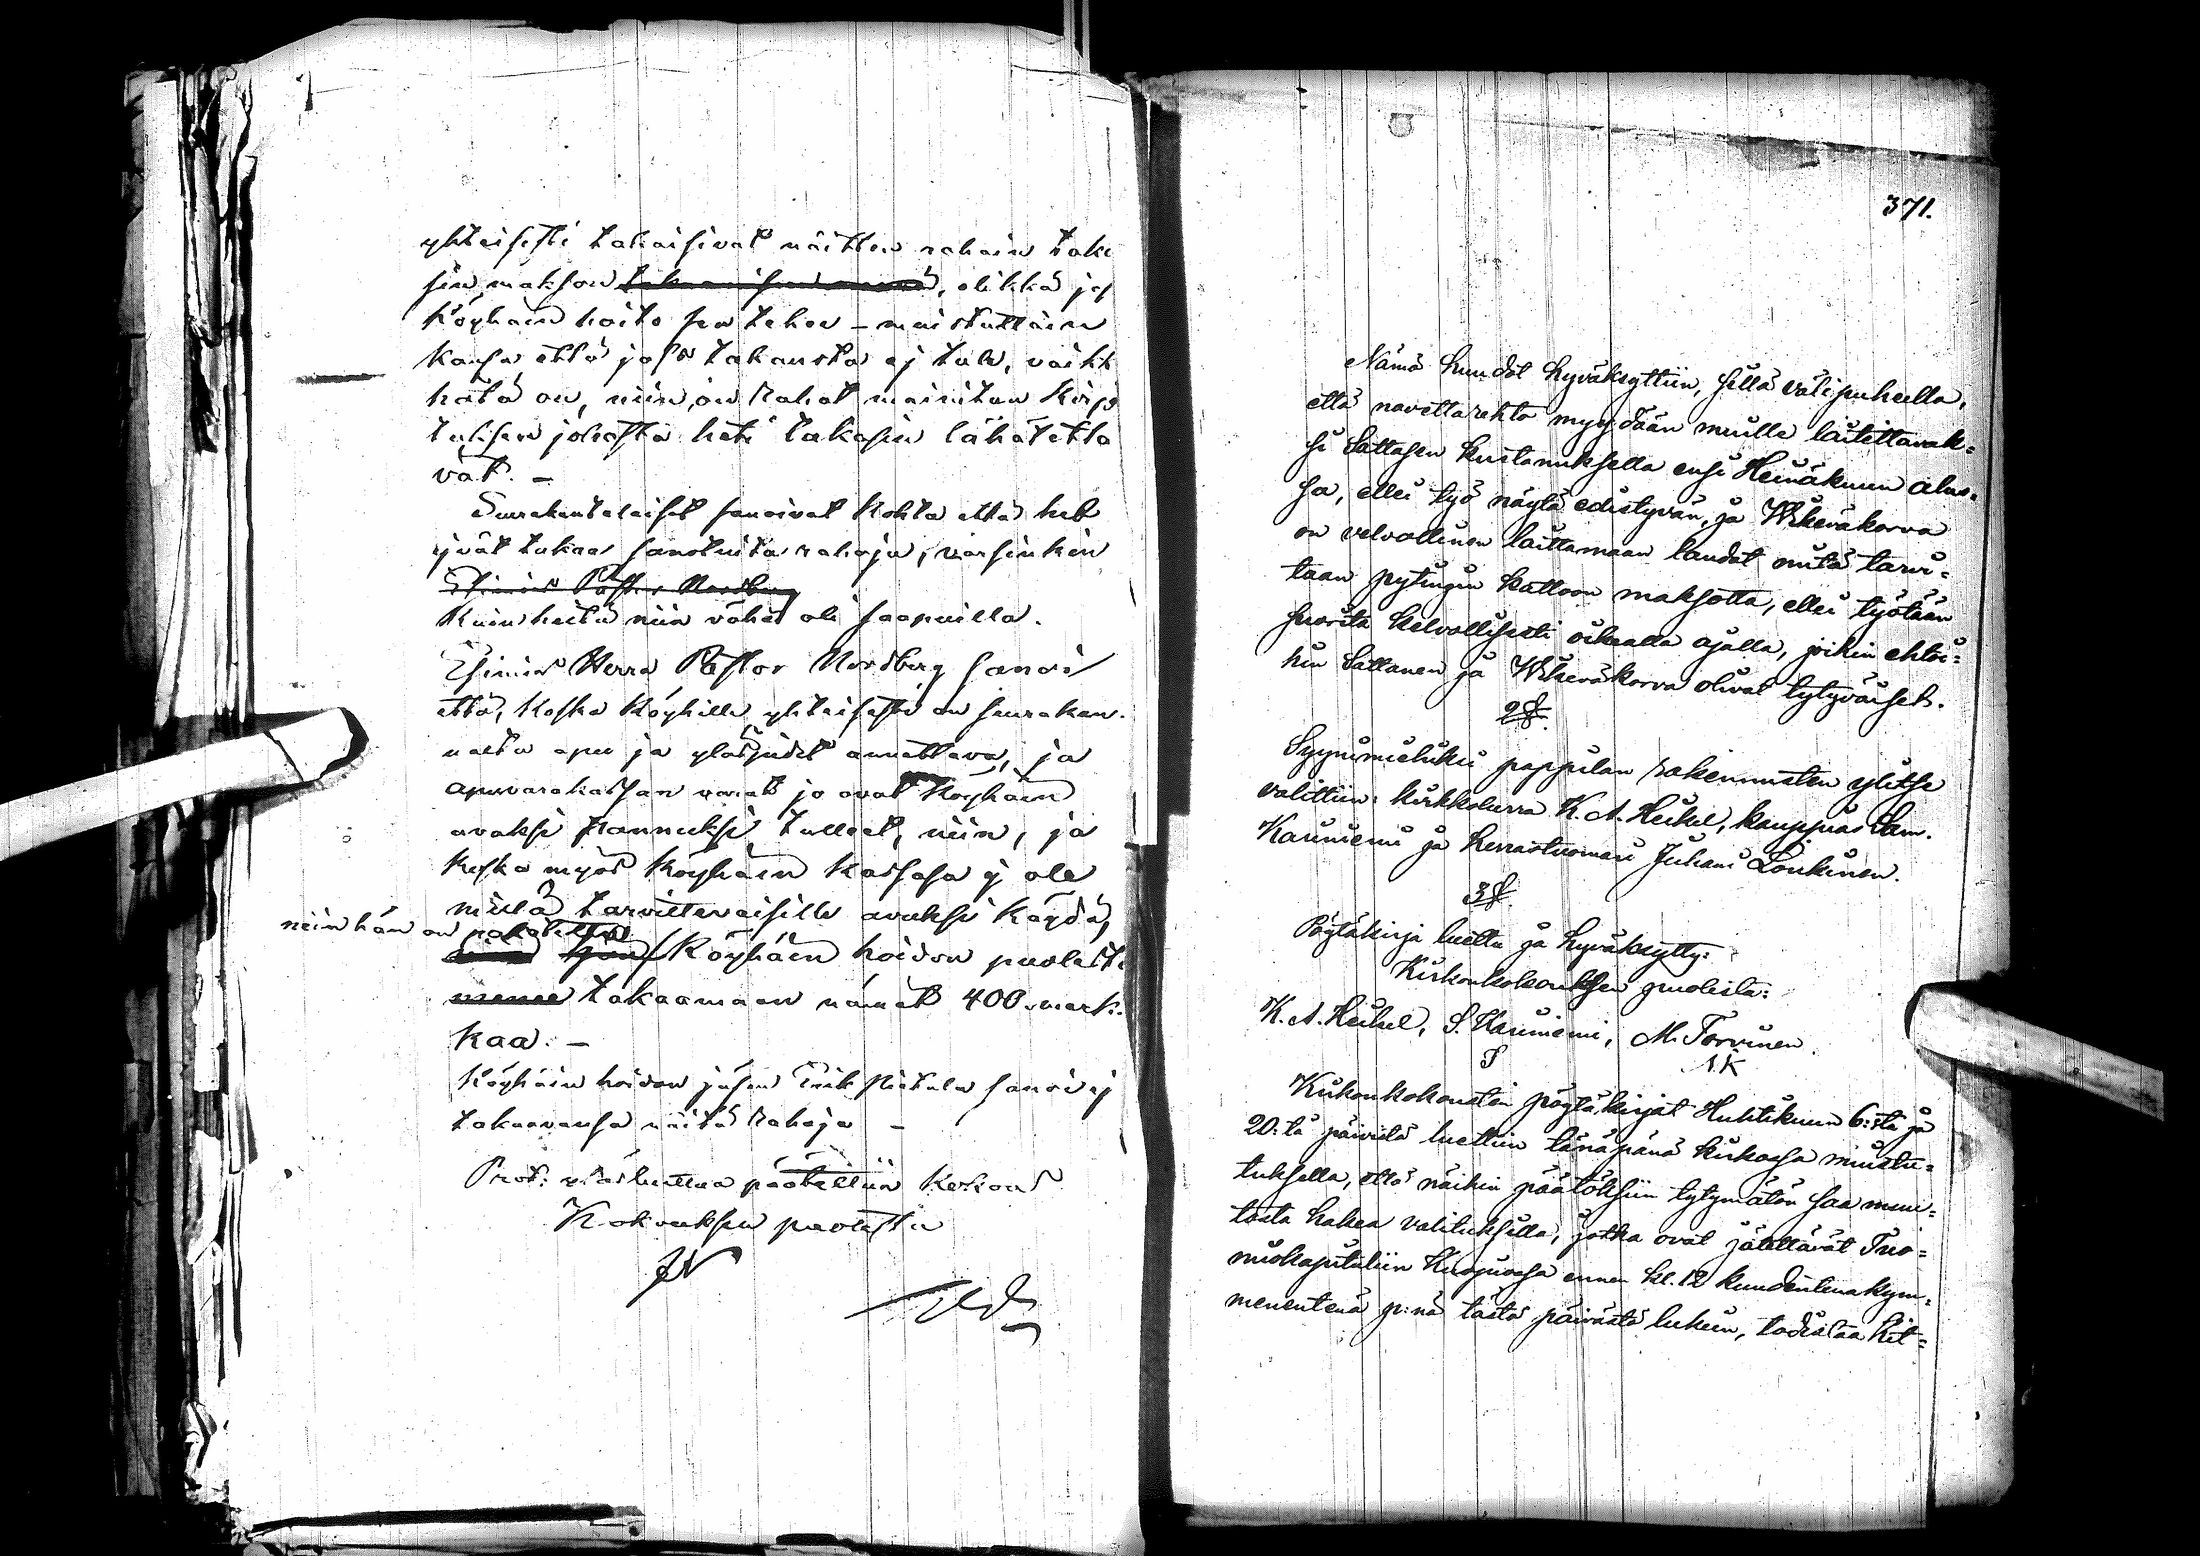 yhteisesti takaisivat näitten rahain taka
sin makson, elikkä jos
Köyhäin hoito sen tekee - muistuttain
kansa, että jos takausta ej tule, vaikk
hätä on, niin on rahat mainitun Kirjo
tuksen johosta heti takasin lähätettä
vät. -
Seurakuntalaiset sanoivat kohta että het
ejvät takaa sanotuita rahoja, varsinkin
Esimies Pastor Nordberg
kuin heitä niin vähä oli saapuilla.
Esimies Herra Pastor Nordberg sanoi
että, koska Köyhille yhteisesti on seurakun-
nalta apu ja ylöspidet annettava, ja
apuvarakassan varat jo ovat Köyhäin
avuksi pannuksi tulleet, niin, ja
koska myös Köyhäin kassasa ej ole
millä tarvittevaisille avuksi käydä,
niin hän on pakotettu
Köyhäin hoidon puolesta
menee takaamaan nämät 400 mark-
kaa. -
Köyhäin hoidon jäsen Erik Pietula sanoi ej
takaavansa näitä rahoja -
Prot. ylösluettua päätettiin Kokous
Kokouksen puolesta
JN
371.
Nämä huudot hyväksyttiin, sillä välipuheella,
että navettarehto myydään muille laitettavak-
si Sattasen kustanuksella ensi Heinäkuun alus-
sa, ellei työ näytä edistyvän, ja Wäkeväkorva
on velvollinen laittamaan laudat mitä tarvi-
taan pytingin kattoon maksotta, ellei työtään
suorita kelvollisesti oikealla ajalla, joihin ehtoi-
hin Sattanen ja Wäkeväkorva olivat tytyväiset.
2 §.
Syynimieluku pappilan rakennusten ylitse
valittiin: kirkkoherra K. A. Heikel, kauppias Sam.
Kariniemi ja herrastuomari Juhani Lonkinen.
3 §.
Pöytäkirja luettu ja hyväksytty:
Kirkonkokouksen puolesta:
K. A. Heikel, S. Kariniemi, M. Torvinen.
Kirkonkokousten pöytäkirjat Huhtikuun 6:sta ja
20:tä päivistä luettiin tänäpänä kirkossa muistu-
tuksella, että näihin päätöksiin tytymätön saa muu-
tosta hakea valituksilla, jotka ovat jätettävät Tuo-
miokapituliin Kuopiossa ennen kl. 12 kuudentenakym-
menentenä p:nä tästä päivästä lukein, todistaa Kit-